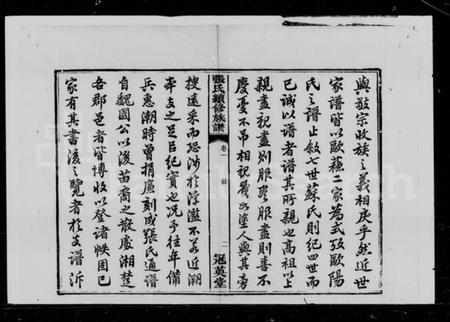 與敬宗收族之義相戾乎然近世
家譜皆以歐蘇二家為式攷歐陽
氏之譜止敘七世蘇氏則紀四世而
已誠以譜者譜其所親也高祖以上
親盡親盡則服盡服盡則喜不
慶憂不弔相視若塗人與其旁
張氏續修族譜
卷一
二
冠英堂
搜遠采而恐涉於浮濫不若近溯
本支之足昭紀實也況予往年備
兵惠潮時曾捐廉刻成張氏通譜
自魏國公以後苗裔之散處湘楚
各郡邑者皆博收以登諸帙固已
家有其書後之覽者於支譜泝